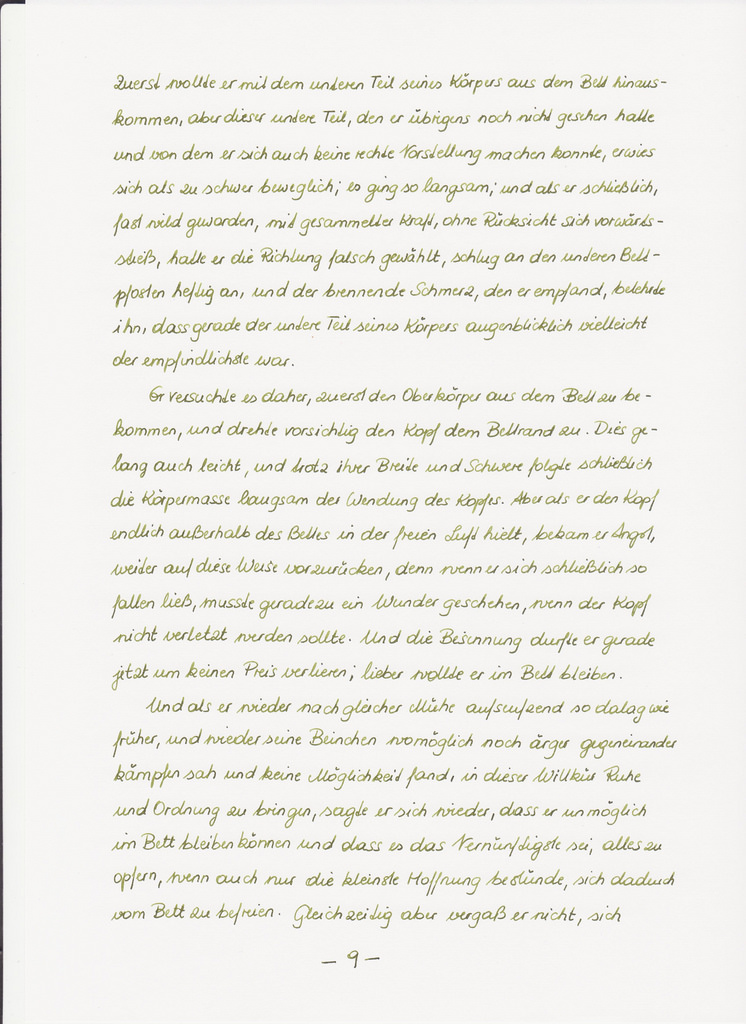 Zuerst wollte er mit dem unteren Teil seines Körpers aus dem Bett hinaus-
kommen, aber dieser untere Teil, den er übrigens noch nicht gesehen hatte
und von dem er sich auch keine rechte Vorstellung machen konnte, erwies
sich als zu schwer beweglich; es ging so langsam; und als er schließlich,
fast wild geworden, mit gesammelter Kraft, ohne Rücksicht sich vorwärts-
stieß, hatte er die Richtung falsch gewählt, schlug an den unteren Bett-
pfosten heftig an, und der brennende Schmerz, den er empfand, belehrte
ihn, dass gerade der untere Teil seines Körpers augenblicklich vielleicht
der empfindlichste war.
Er versuchte es daher, zuerst den Oberkörper aus dem Bett zu be-
kommen, und drehte vorsichtig den Kopf dem Bettrand zu. Dies ge-
lang auch leicht, und trotz ihrer Breite und Schwere folgte schließlich
die Körpermasse langsam der Wendung des Kopfes. Aber als er den Kopf
endlich außerhalb des Bettes in der freien Luft hielt, bekam er Angst,
weiter auf diese Weise vorzurücken, denn wenn er sich schließlich so
fallen ließ, musste geradezu ein Wunder geschehen, wenn der Kopf
nicht verletzt werden sollte. Und die Besinnung durfte er gerade
jetzt um keinen Preis verlieren; lieber wollte er im Bett bleiben.
Und als er wieder nach gleicher Mühe aufseufzend so dalag wie
früher, und wieder seine Beinchen womöglich noch ärger gegeneinander
kämpfen sah und keine Möglichkeit fand, in dieser Willkür Ruhe
und Ordnung zu bringen, sagte er sich wieder, dass er unmöglich
im Bett bleiben können und dass es das Vernünftigste sei, alles zu
opfern, wenn auch nur die kleinste Hoffnung bestünde, sich dadurch
vom Bett zu befreien. Gleichzeitig aber vergaß er nicht, sich
- 9 -